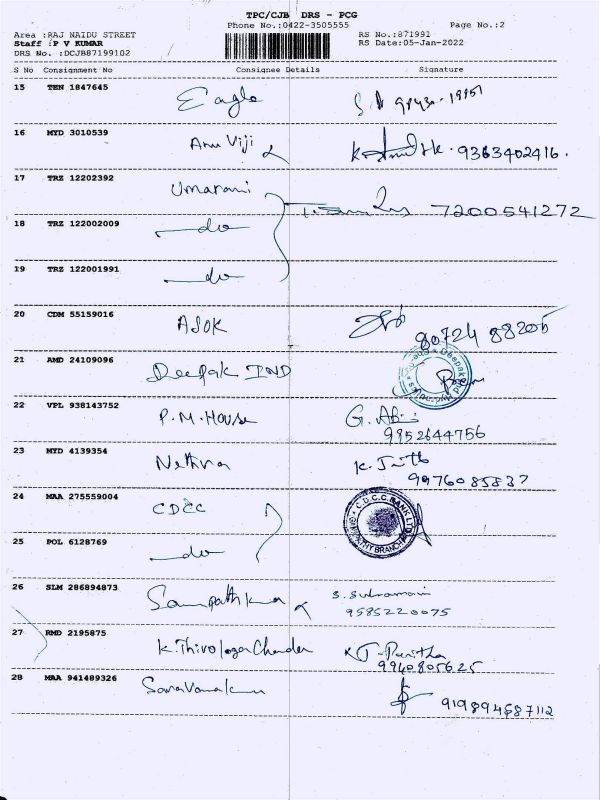 TPC/CJB DRS - PCG
Phone No.:0422-3505555 Page No.:2
Area :RAJ NAIDU STREET RS No.:871991
Staff :P V KUMAR RS Date:05-Jan-2022
DRS No. :DCJB87199102
S No Consignment No Consignee Details Signature
15 TEN 1847645
Eagle
16 MYD 3010539
Anu Viji 9363402416.
17 TRZ 12202392
Umarani
7200541272
18 TRZ 122002009
do
19 TRZ 122001991
do
20 CDM 55159016
ASOK 80724 88205
21 AMD 24109096
Deepak IND
22 VPL 938143752
P.M. House G. Abi
9952644756
23 MYD 4139354
Nethra
9976085837
24 MAA 275559004
CDCC C.D.C.C. BANK LTD
25 POL 6128769
do
26 SLM 286894873
Sampathkumar
9585220075
27 RMD 2195875
K. Thivologa Chander
9940805625
28 MAA 941489326
Saravanaku
919894687112